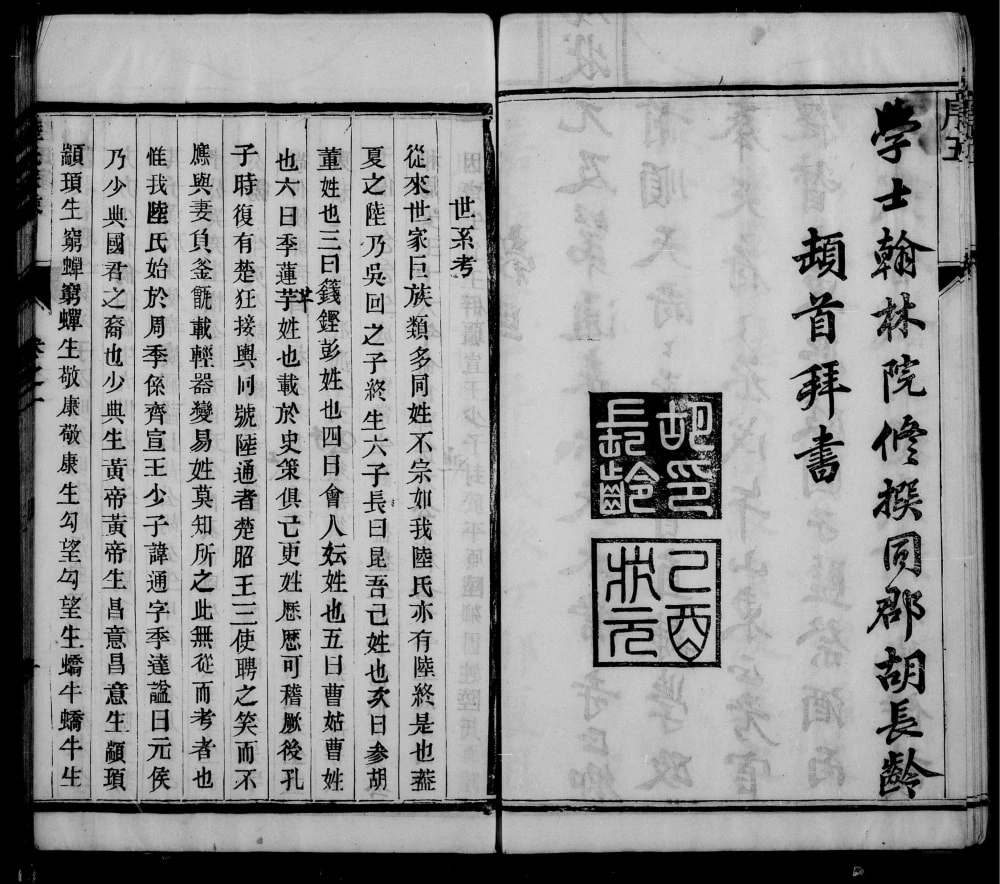 学士翰林院修撰同郡胡長齡
頓首拜書
胡印
長齡
己酉
狀元
世系考
從來世家巨族類多同姓不宗如我陸氏亦有陸終是也蓋
夏之陸乃吳回之子終生六子長曰昆吾己姓也次曰參胡
董姓也三曰籛鏗彭姓也四曰會人妘姓也五曰曹姑曹姓
也六曰季蓮芊姓也載於史策俱已更姓歷歷可稽厥後孔
子時復有楚狂接輿何號陸通者楚昭王三使聘之笑而不
應與妻負釜甑載輕器變易姓莫知所之此無從而考者也
惟我陸氏始於周季係齊宣王少子諱通字季達謚曰元侯
乃少典國君之裔也少典生黃帝黃帝生昌意昌意生顓頊
顓頊生窮蟬窮蟬生敬康敬康生勾望勾望生蟜牛蟜牛生